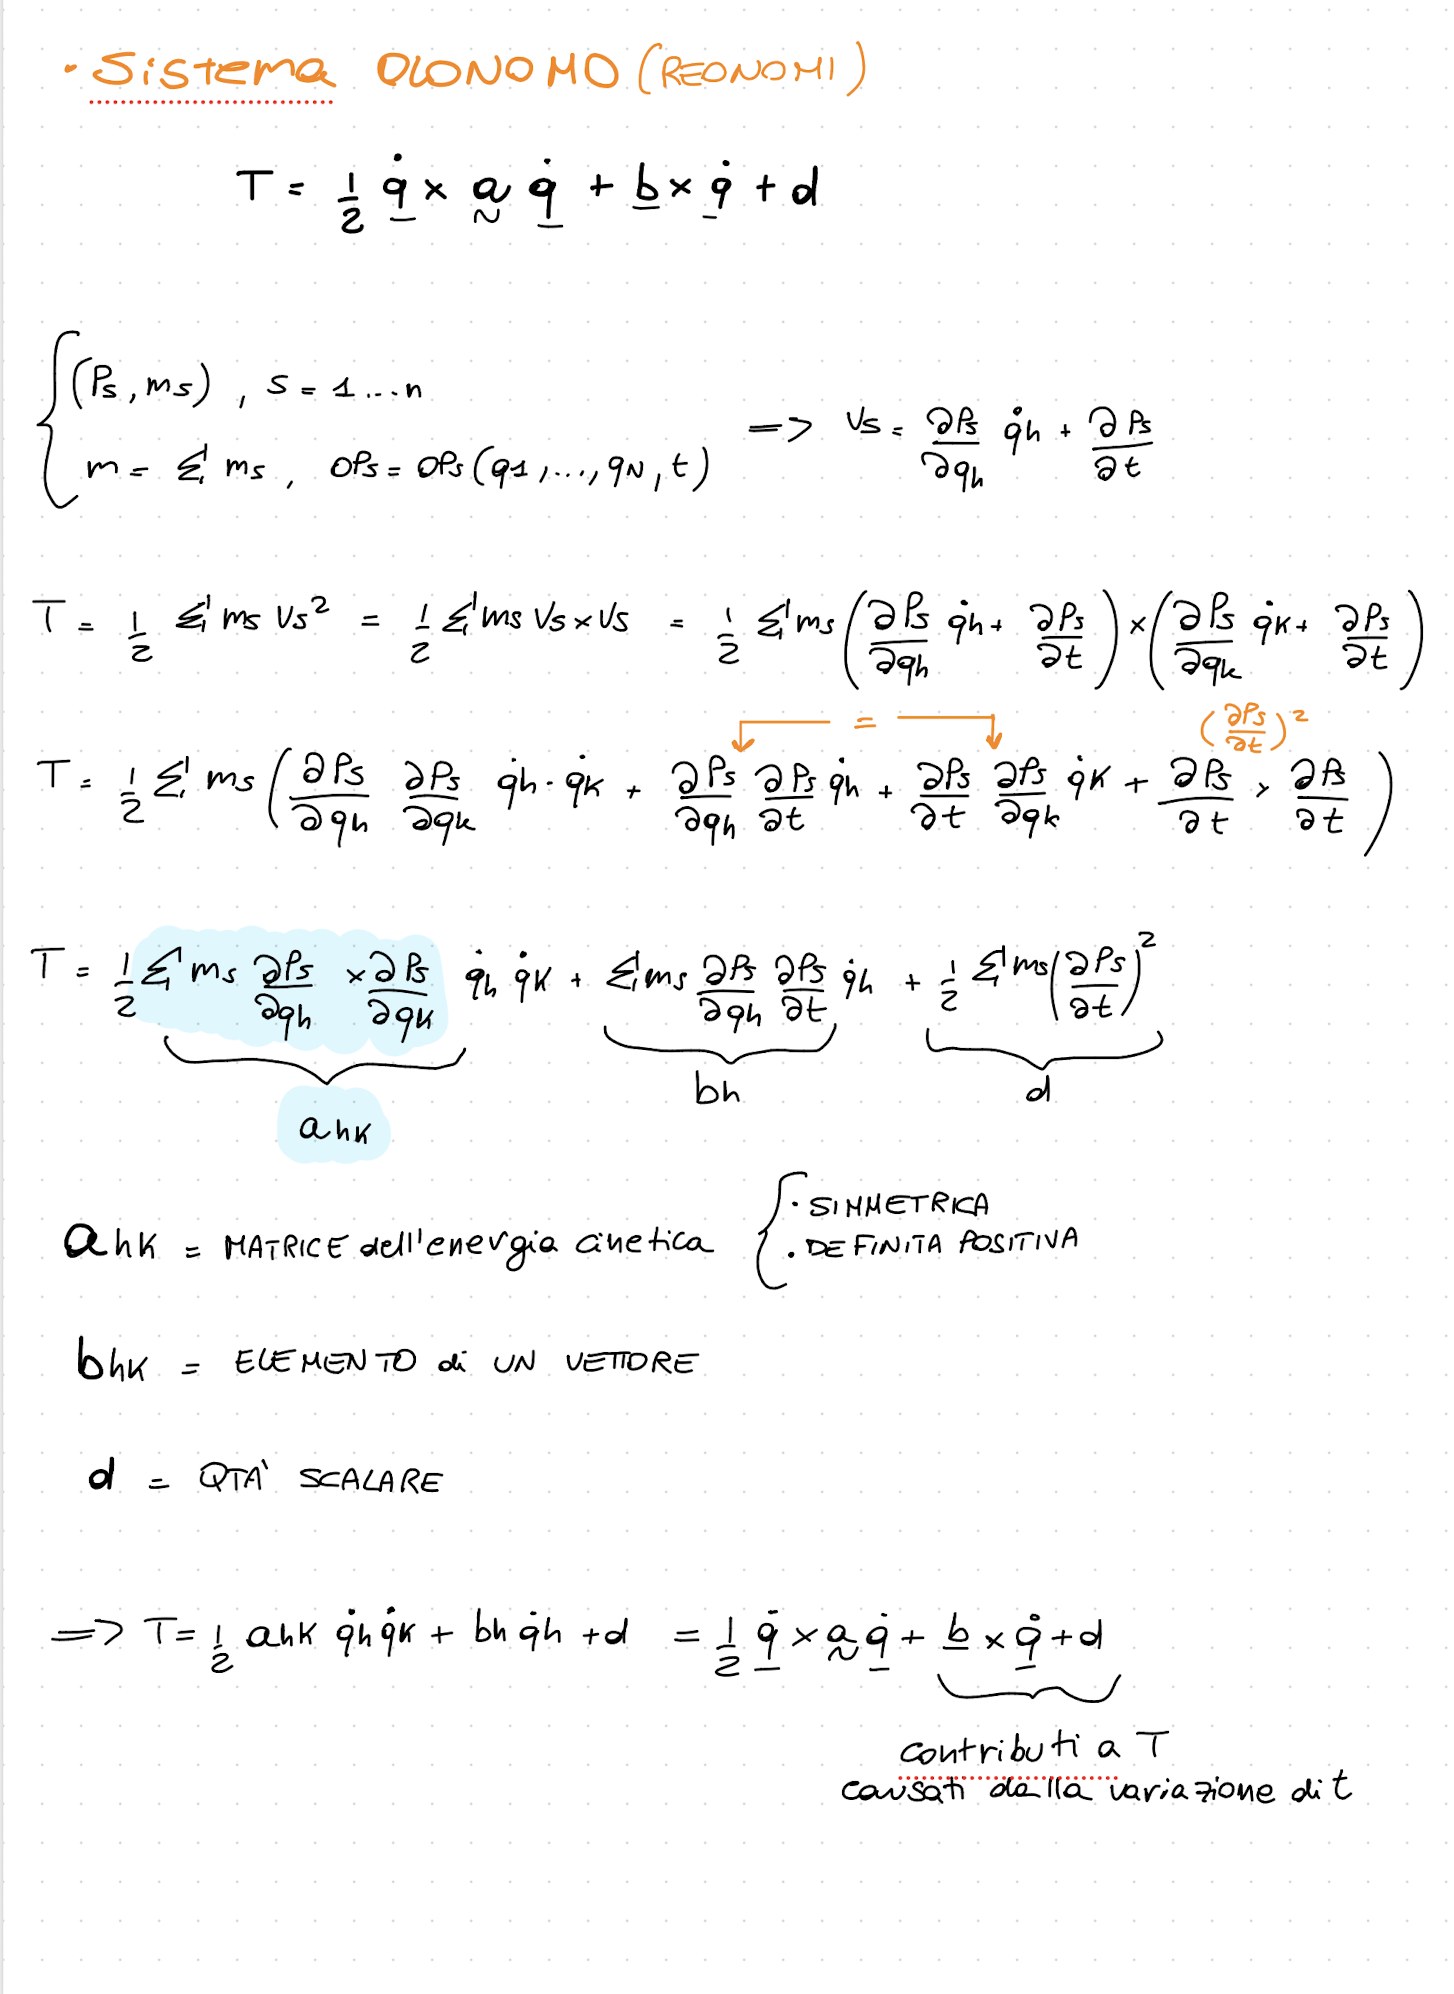 • Sistema OLONOMO (REONOMI)
T = 1/2 q̇ × a q̇ + b × q̇ + d
(Ps, ms) , s = 1 ... n
m = Σ ms , OPs = OPs (q1, ..., qN, t) => vs = ∂Ps/∂qh q̇h + ∂Ps/∂t
T = 1/2 Σ ms vs² = 1/2 Σ ms vs × vs = 1/2 Σ ms (∂Ps/∂qh q̇h + ∂Ps/∂t) × (∂Ps/∂qk q̇k + ∂Ps/∂t)
= (∂Ps/∂t)²
T = 1/2 Σ ms (∂Ps/∂qh ∂Ps/∂qk q̇h · q̇k + ∂Ps/∂qh ∂Ps/∂t q̇h + ∂Ps/∂t ∂Ps/∂qk q̇k + ∂Ps/∂t × ∂Ps/∂t)
T = 1/2 Σ ms ∂Ps/∂qh × ∂Ps/∂qk q̇h q̇k + Σ ms ∂Ps/∂qh ∂Ps/∂t q̇h + 1/2 Σ ms (∂Ps/∂t)²
ahk bh d
ahk = MATRICE dell'energia cinetica
• SIMMETRICA
• DEFINITA POSITIVA
bhk = ELEMENTO di UN VETTORE
d = QTA' SCALARE
=> T = 1/2 ahk q̇h q̇k + bh q̇h + d = 1/2 q̇ × a q̇ + b × q̇ + d
contributi a T
causati dalla variazione di t